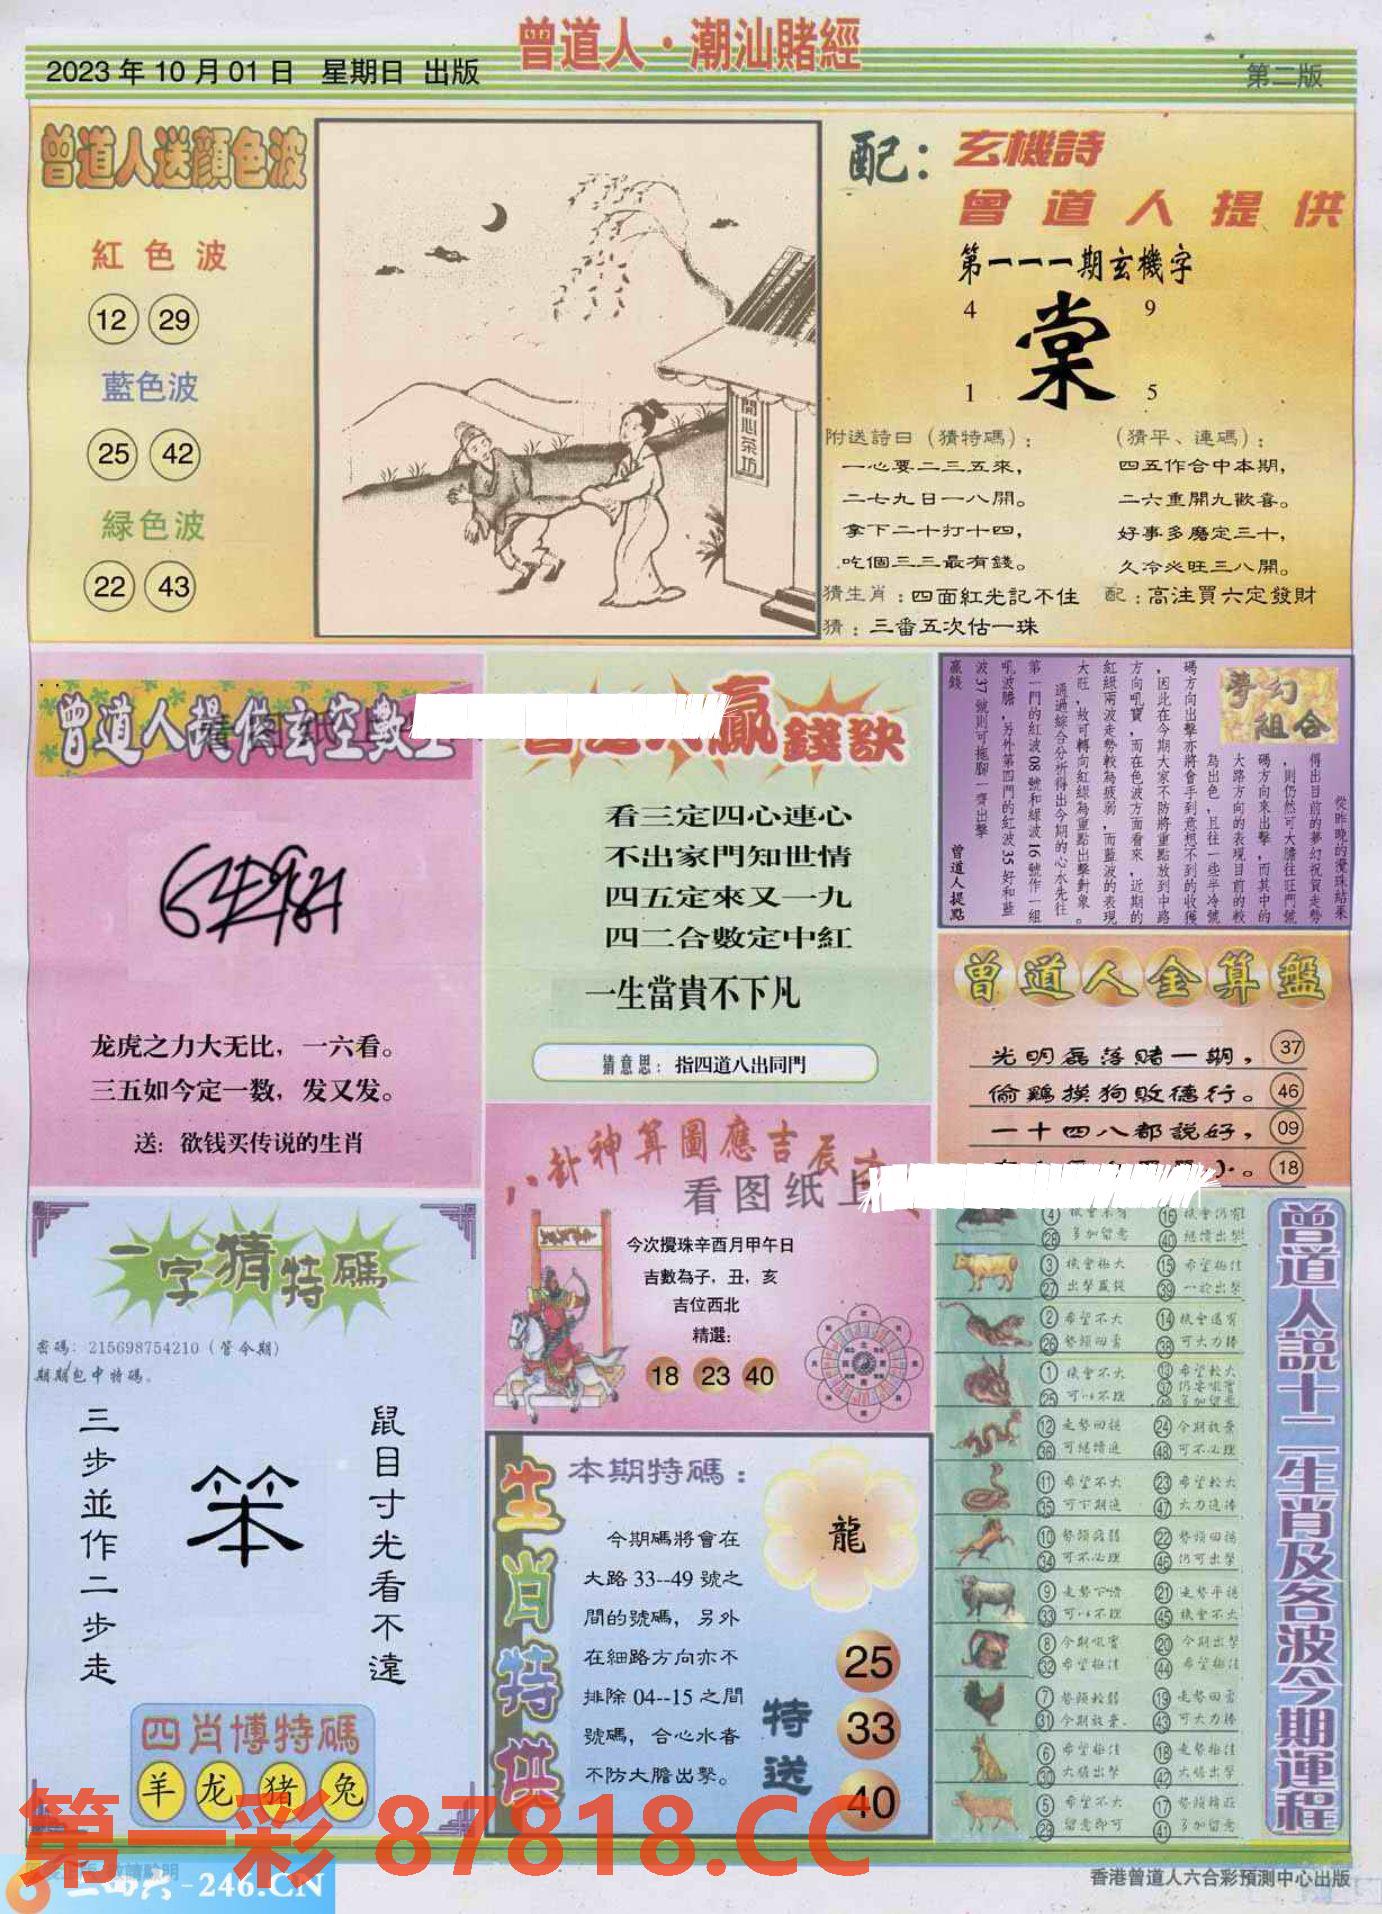 曾道人·潮汕賭經
2023年10月01日 星期日 出版
第二版
曾道人送顔色波
紅色波
12 29
藍色波
25 42
緑色波
22 43
開心茶坊
配：玄機詩
曾道人提供
第一一一期玄機字
4 9
棠
1 5
附送詩曰（猜特碼）：
一心要二三五來，
二七九日一八開。
拿下二十打十四，
吃個三三最有錢。
（猜平、連碼）：
四五作合中本期，
二六重開九歡喜。
好事多磨定三十，
久冷必旺三八開。
猜生肖：四面紅光記不住 配：高注買六定發財
猜：三番五次估一珠
曾道人提供玄空數
龙虎之力大无比，一六看。
三五如今定一数，发又发。
送：欲钱买传说的生肖
贏錢訣
看三定四心連心
不出家門知世情
四五定來又一九
四二合數定中紅
一生當貴不下凡
猜意思：指四道八出同門
夢幻組合
從昨晚的攪珠結果
得出目前的夢幻祝賀走勢
，則仍然可大膽往旺門號
碼方向來出擊，而其中的
大路方向的表現目前的較
為出色，且往一些半冷號
碼方向出擊亦將會手到意想不到的收獲
，因此在今期大家不防將重點放到中路
方向吼寶，而在色波方面看來，近期的
紅綠兩波走勢較為疲弱，而藍波的表現
大旺，故可轉向紅綠為重點出擊對象。
通過綜合分析得出今期的心水先往
第一門的紅波08號和綠波16號作一組
吼波膽，另外第四門的紅波35好和藍
波37號則可拖腳一齊出擊
贏錢
曾道人提點
曾道人金算盤
光明磊落賭一期， 37
偷鷄摸狗敗德行。 46
一十四八都説好， 09
18
八卦神算圖應吉辰
看图纸上
今次攪珠辛酉月甲午日
吉數為子，丑，亥
吉位西北
精選：
18 23 40
一字猜特碼
密碼：215698754210（管今期）
期期包中特碼。
鼠目寸光看不遠
笨
三步並作二步走
四肖博特碼
羊 龙 猪 兔
生肖特供
本期特碼：
龍
今期碼將會在
大路33--49號之
間的號碼，另外
在細路方向亦不
排除04--15之間
號碼，合心水者
不防大膽出擊。
特送
25
33
40
曾道人説十二生肖及各波今期運程
4 28 多加留意 16 40 機會仍有 繼續出擊
3 27 機會極大 出擊贏錢 15 39 希望極佳 一於出擊
2 26 希望不大 勢頭回落 14 38 機會還有 可大力捧
1 25 機會不大 可以不理 13 37 希望較大
12 36 走勢回穩 可繼續追 24 48 今期放棄 可不必理
11 35 希望不大 可下期追 23 47 希望較大 大力追捧
10 34 勢頭疲弱 可不必理 22 46 勢頭回穩 仍可出擊
9 33 走勢下滑 可以不理 21 45 走勢平穩 機會不大
8 32 今期吼寶 希望極佳 20 44 今期出擊 希望極佳
7 31 勢頭較弱 今期放棄 19 43 走勢回落 可大力捧
6 30 希望極佳 大膽出擊 18 42 走勢極佳 大膽出擊
5 29 希望不大 留意即可 17 41 勢頭轉旺 多加留意
第一彩 87818.CC
二四六-246.CN
香港曾道人六合彩預測中心出版